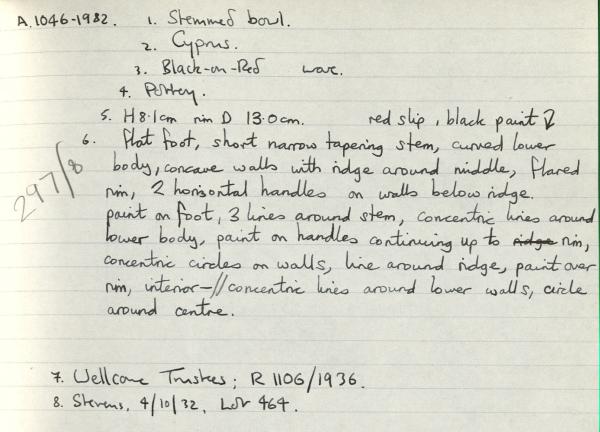 A.1046-1982. 1. Stemmed bowl.
2. Cyprus.
3. Black-on-Red ware.
4. Pottery.
5. H 8.1cm rim D 13.0cm. red slip, black paint
6. flat foot, short narrow tapering stem, curved lower
body, concave walls with ridge around middle, flared
rim, 2 horizontal handles on walls below ridge.
paint on foot, 3 lines around stem, concentric lines around
lower body, paint on handles continuing up to ridge rim,
concentric circles on walls, line around ridge, paint over
rim, interior-//concentric lines around lower walls, circle
around centre.
297/8
7. Wellcome Trustees; R 1106/1936.
8. Stevens, 4/10/32, Lot 464.